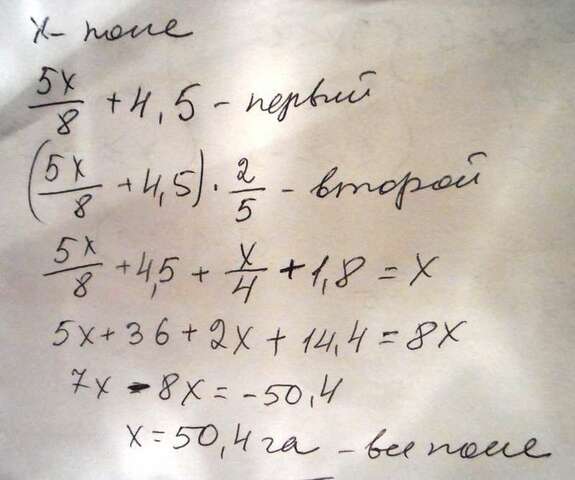 x - поле
5x/8 + 4,5 - первый
(5x/8 + 4,5) · 2/5 - второй
5x/8 + 4,5 + x/4 + 1,8 = x
5x + 36 + 2x + 14,4 = 8x
7x - 8x = -50,4
x = 50,4 га - все поле